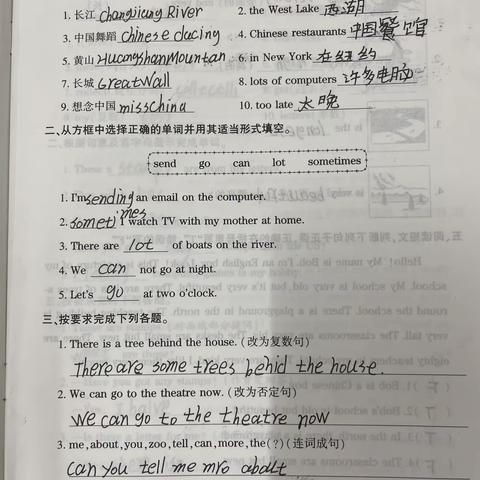 1. 长江 Changjiang River 2. the West Lake 西湖
3. 中国舞蹈 Chinese dacing 4. Chinese restaurants 中国餐馆
5. 黄山 HuangshanMountan 6. in New York 在纽约
7. 长城 GreatWall 8. lots of computers 许多电脑
9. 想念中国 missChina 10. too late 太晚
二、从方框中选择正确的单词并用其适当形式填空。
send go can lot sometimes
1. I'm sending an email on the computer.
2. sometimes I watch TV with my mother at home.
3. There are lot of boats on the river.
4. We can not go at night.
5. Let's go at two o'clock.
三、按要求完成下列各题。
1. There is a tree behind the house. (改为复数句)
There are some trees behid the house.
2. We can go to the theatre now. (改为否定句)
We can go to the theatre now
3. me, about, you, zoo, tell, can, more, the(?)(连词成句)
can you tell me mro abalt